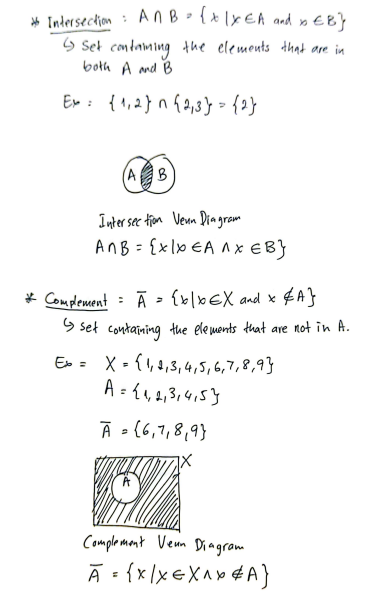 * Intersection : A ∩ B = {x | x ∈ A and x ∈ B}
↳ Set containing the elements that are in
both A and B
Ex : {1,2} ∩ {2,3} = {2}
A B
Intersection Venn Diagram
A ∩ B = {x | x ∈ A ∧ x ∈ B}
* Complement : A̅ = {x | x ∈ X and x ∉ A}
↳ set containing the elements that are not in A.
Ex = X = {1,2,3,4,5,6,7,8,9}
A = {1,2,3,4,5}
A̅ = {6,7,8,9}
X
A
Complement Venn Diagram
A̅ = {x | x ∈ X ∧ x ∉ A}